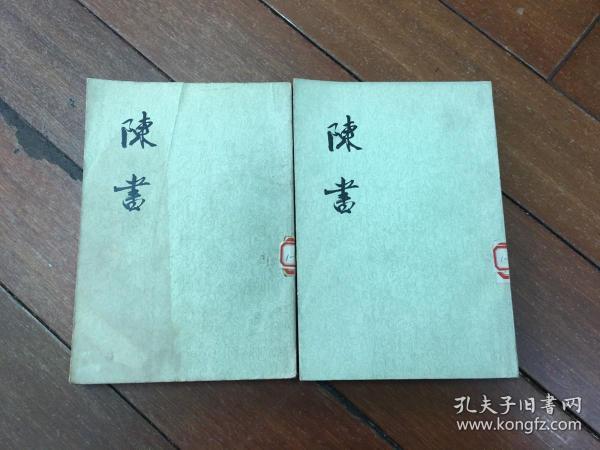 陳書
陳書
孔夫子旧书网
www.kongfz.com